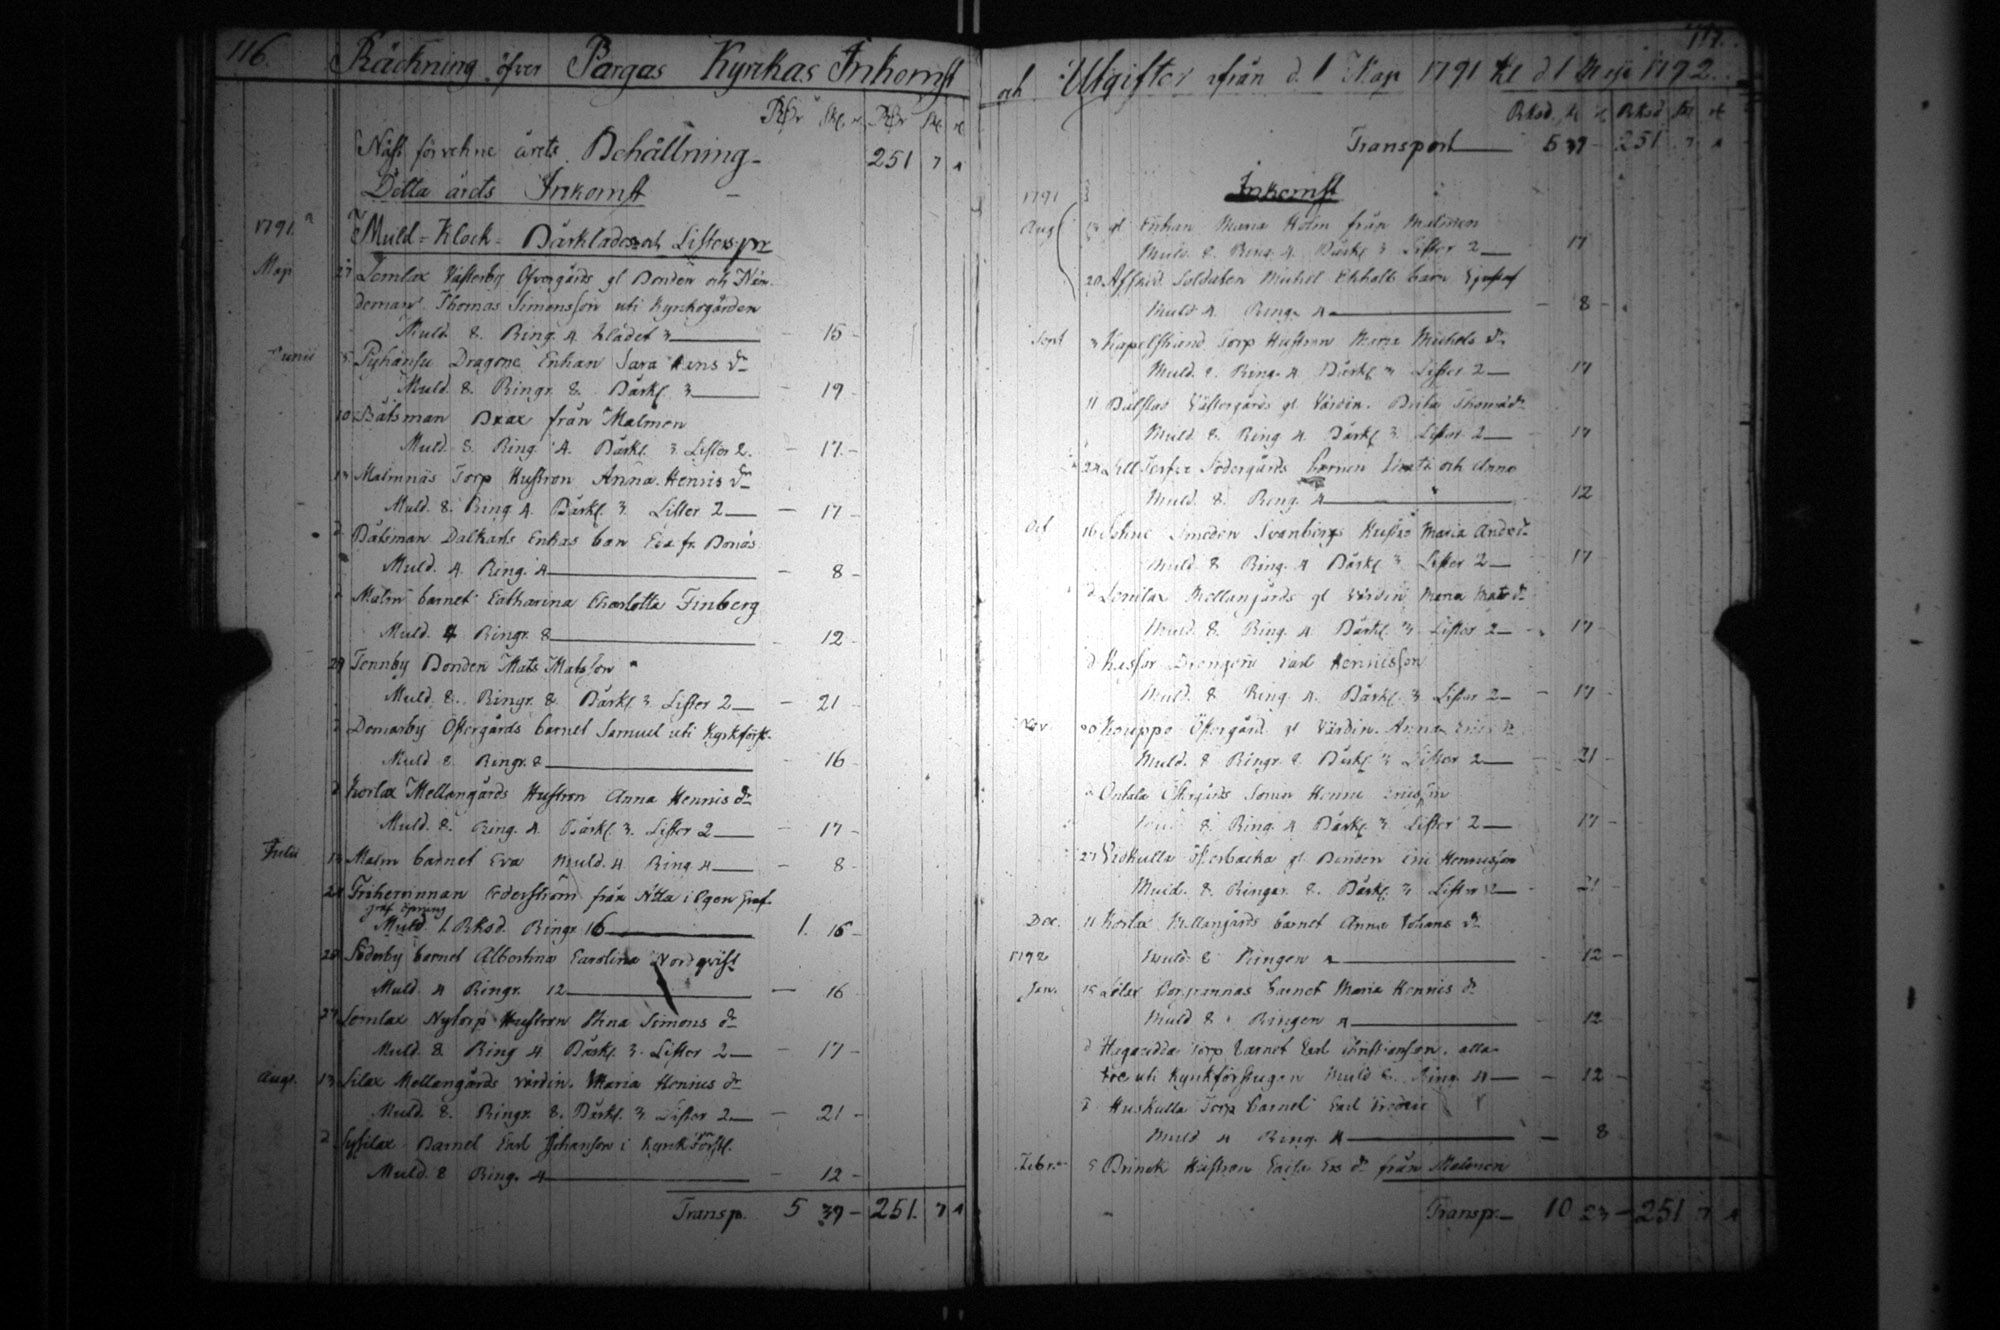 116. Räckning öfver Pargas Kyrkas Inkomst
Rdr Sk. rst Rdr Sk rst
Näst förvekne årets Behållning - 251 7 4
Detta årets Inkomst -
1791. Muld- Klock- Bårkläder och Lifters pr
Maji 27 Lemlax Västerby Öfvergårds gl Bonden och Näm-
deman Thomas Simonsson uti Kyrkogården
Muld 8. Ring. 4. klädet 3 — 15 -
Junii 5 Pyhänsu Dragone Enkan Sara Hans dr
Muld. 8. Ringr. 8. Bårkl. 3 — 19
10 Båtsman Brax från Malmen
Muld. 8. Ring. 4. Bårkl. 3. Lifter 2. — 17. -
13 Malmnäs Torp Hustron Anna Henris dr
Muld. 8. Ring. 4. Bårkl. 3. Lifter 2 — 17 -
d Båtsman Dalkarls Enkas barn Eva fr. Bonäs
Muld. 4. Ring. 4 — 8 -
d Malm barnet Catharina Charlotta Finberg
Muld. 4 Ringr. 8 — 12
29 Tennby Bonden Mats Matsson
Muld 8. Ringr. 8. Bårkl. 3. Lifter 2 — 21 -
d Domarby Östergårds barnet Samuel uti Kyrkförst.
Muld 8. Ringr. 8 — 16 -
d Korlax Mellangårds Hustron Anna Hennis dr
Muld. 8. Ring. 4. Bårkl. 3. Lifter 2 — 17 -
Julii 13 Malm barnet Eva Muld. 4. Ring. 4 — 8 -
24 Friherrinnan Cederström från Attu i egen graf.
graf öpning
Muld 1. Rksd. Ringr. 16 — 1. 16 -
25 Söderby barnet Albertina Carolina Nordqvist
Muld. 4 Ringr. 12 — 16
27 Lemlax Nytorp Hustron Stina Simons dr
Muld. 8 Ring 4. Bårkl. 3. Lifter 2 — 17 -
Augs. 13 Silax Mellangårds värdin. Maria Henries dr
Muld. 8. Ringr. 8. Bårkl. 3 Lifter 2 — 21 -
d Sysilax Barnet Carl Johansson i Kyrk Förstl.
Muld. 8 Ring. 4 — 12 -
Transp. 5 39 - 251. 7 4
och Utgifter ifrån d. 1 Maji 1791 til d 1 Maji 1792. 117.
Rksd. sk rst Rksd sk rst
Transport — 5 39 - 251 7 4
1791 Inkomst
Aug 13 gl Enkan Maria Holm från Malmen
Muld. 8. Ring. 4. Bårkl 3 Lifter 2 — 17
20 Affsked. Soldaten Michel Ekholts barn Gustaf
Muld 4. Ring. 4 — 8 -
Sept 3 Kapelstrand Torp Hustron Maria Michels dr
Muld. 8. Ring. 4. Bårkl 3 Lifter 2 — 17
11 Bälstad Västergårds gl Värdin. Brita Thomædr
Muld 8. Ring 4. Bårkl 3. Lifter 2 — 17
24 Lill Terfve Södergårds barnen och Anna
Muld 8. Ring. 4 — 12
Oct 16 Smeden Svanbergs Hustro Maria Anders dr
Muld 8 Ring. 4 Bårkl 3 Lifter 2 — 17
d Lemlax Mellangårds gl Värdin Maria Mats dr
Muld. 8. Ring. 4. Bårkl. 3. Lifter 2 — 17 -
d Kassor Drengen Carl Hennisson
Muld. 8 Ring 4. Bårkl. 3 Lifter 2 — 17 -
Nov. 20 Kouppo Östergård gl Värdin. Anna Erics dr
Muld. 8 Ringr. 8 Bårkl 3 Lifter 2 — 21 -
d Ontala Östergårds Sonen Henric Ericsson
Muld 8. Ring. 4 Bårkl 3 Lifter 2 — 17 -
27 Vidkulla Österbacka gl Bonden Eric Hennisson
Muld. 8. Ringr. 8. Bårkl 3 Lifter 2 — 21 -
Dec. 11 Korlax Mellangårds barnet Anna Johans dr
1792 Muld 8 Ringen 4 — 12 -
Jan. 15 Lillax barnet Maria Hennis dr
Muld 8. Ringen 4 — 12 -
d Haradda Torp barnet Carl Christiansson.
uti Kyrkförstugen Muld 8. Ring. 4 — 12 -
d Huskulla Torp barnet Carl Fredric
Muld 4 Ring. 4 — 8
Febr. 5 Brinck Hustron Caisa Ers dr från Malmen
Transpr. 10 23 - 251 7 4